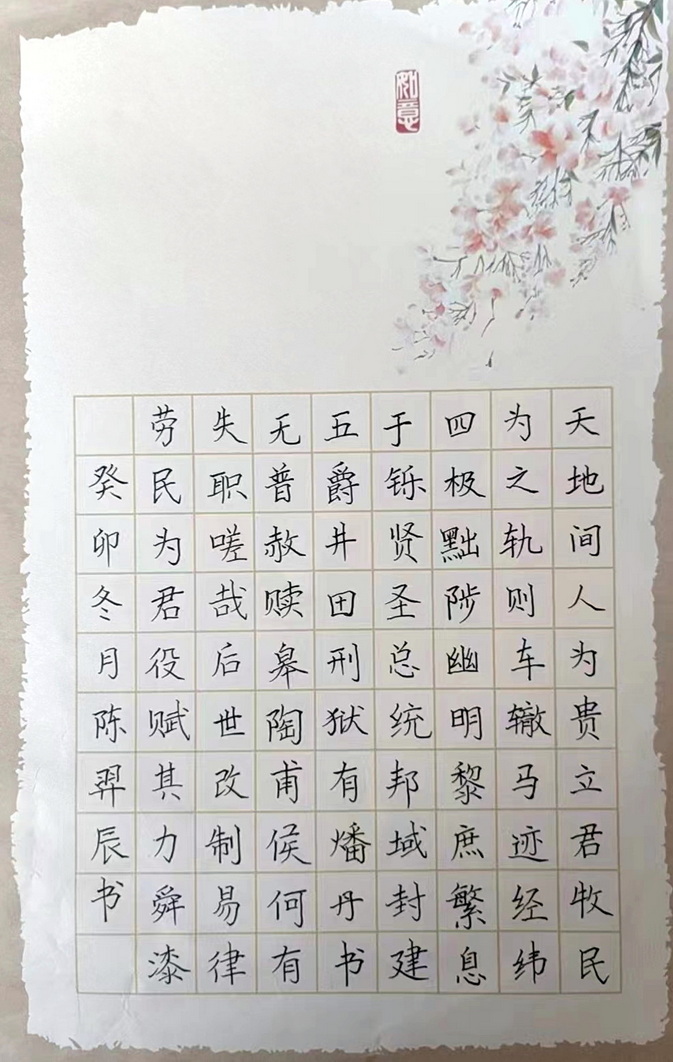 如意
天地间人为贵立君牧民
为之轨则车辙马迹经纬
四极黜陟幽明黎庶繁息
于铄贤圣总统邦域封建
五爵井田刑狱有燔丹书
无普赦赎皋陶甫侯何有
失职嗟哉后世改制易律
劳民为君役赋其力舜漆
癸卯冬月陈羿辰书